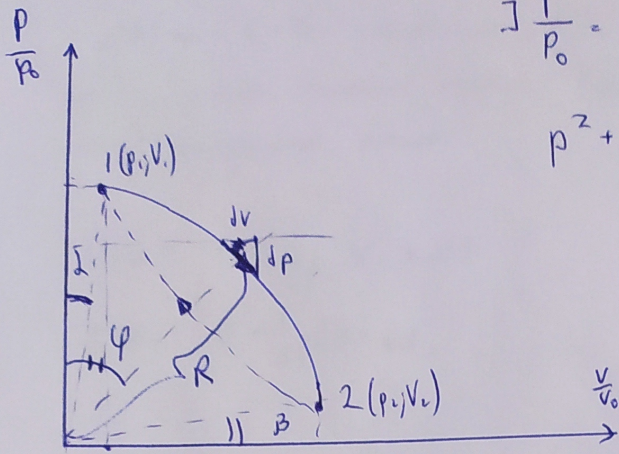 P/p₀
] 1/p₀ =
p² +
1 (p₁; V₁)
dv
dp
φ
R
β
2 (p₂; V₂)
V/V₀